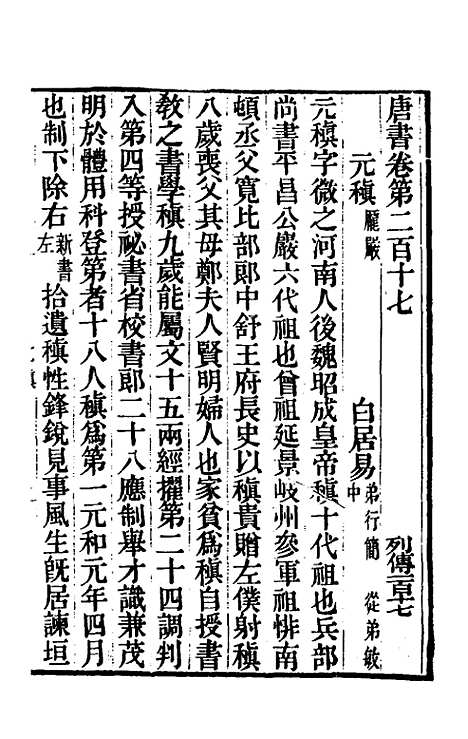 唐書卷第二百十七　列傳一百七
元稹龐嚴　白居易弟行簡　從弟敏中
元稹字微之河南人後魏昭成皇帝稹十代祖也兵部
尚書平昌公巖六代祖也曾祖延景岐州參軍祖悱南
頓丞父寬比部郎中舒王府長史以稹貴贈左僕射稹
八歲喪父其母鄭夫人賢明婦人也家貧爲稹自授書
敎之書學稹九歲能屬文十五兩經擢第二十四調判
入第四等授祕書省校書郎二十八應制舉才識兼茂
明於體用科登第者十八人稹爲第一元和元年四月
也制下除右新書左拾遺稹性鋒銳見事風生旣居諫垣